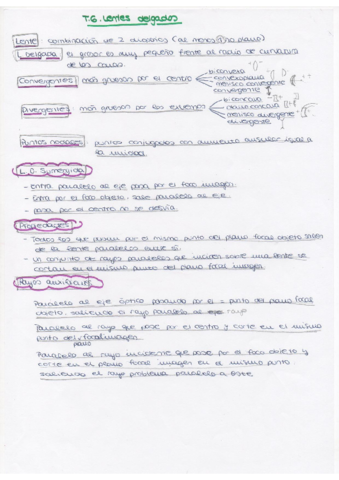 T.6. Lentes delgadas
Lente: combinación de 2 dioptrios (al menos 1 no plano)
L. delgada: el grosor es muy pequeño frente al radio de curvatura
de las caras.
Convergentes: más gruesas por el centro
biconvexa
convexoplana
menisco convergente
convergente
Divergentes: más gruesas por los extremos
bicóncava
planocóncava
menisco divergente
divergente
Puntos nodales: puntos conjugados con aumento angular igual a
la unidad
L.D. Sumergida
- Entra paralelo al eje pasa por el foco imagen.
- Entra por el foco objeto, sale paralelo al eje.
- pasa por el centro no se desvía.
Propiedades
- Todos los que pasan por el mismo punto del plano focal objeto salen
de la lente paralelos entre sí.
- Un conjunto de rayos paralelos que inciden sobre una lente se
cortan en el mismo punto del plano focal imagen.
Rayos auxiliares
Paralelo al eje óptico pasando por el = punto del plano focal
objeto, saliendo a rayo paralelo al eje rayo
Paralelo al rayo que pase por el centro y corte en el mismo
punto del focal imagen.
plano
Paralelo al rayo incidente que pase por el foco objeto y
corte en el plano focal imagen en el mismo punto
saliendo el rayo problema paralelo a éste